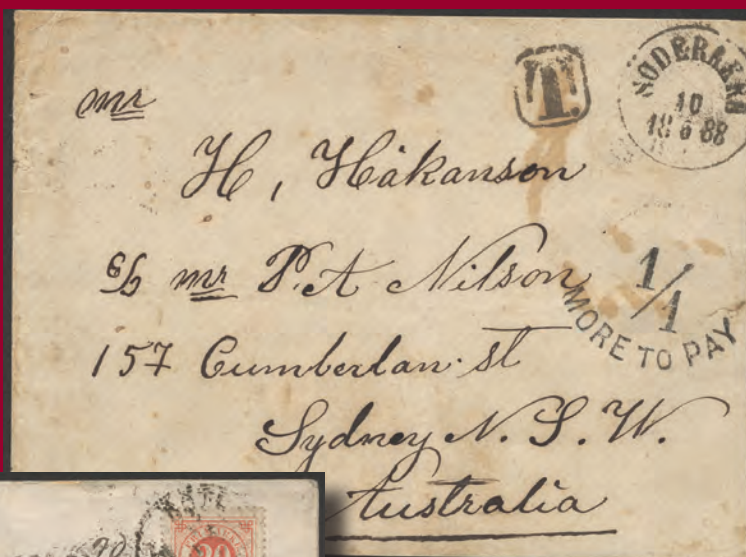 mr
T.
SÖDERÅKRA
10
18 6 88
H, Håkanson
c/o mr P. A Nilson
1/1
MORE TO PAY
157 Cumberlan. st
Sydney N. S. W.
Australia
20